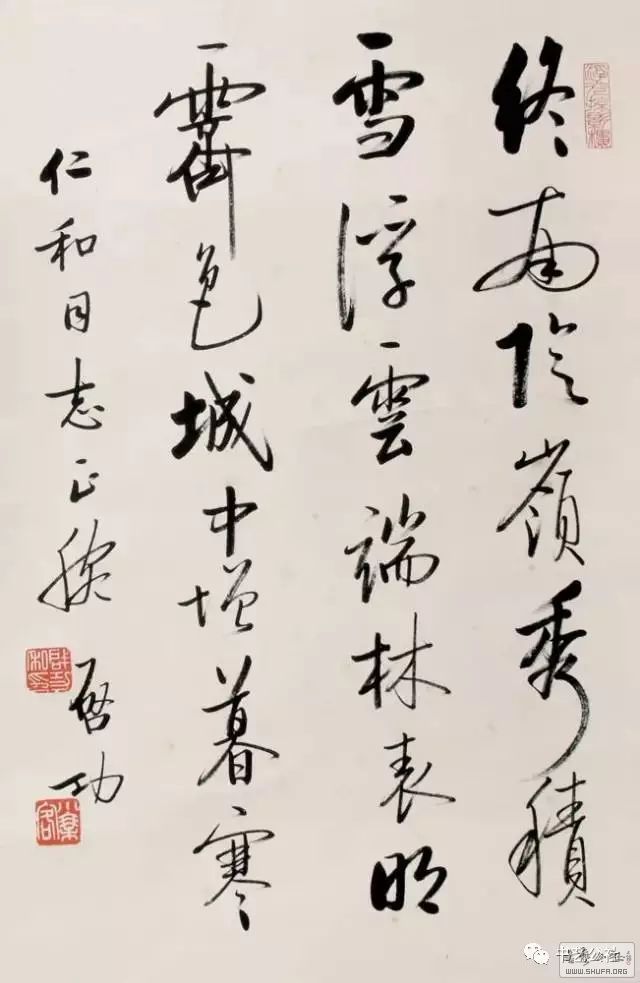 終南陰嶺秀積
雪浮雲端林表明
霽色城中增暮寒
仁和同志正腕
启功
书艺公社
WWW.SHUFA.ORG